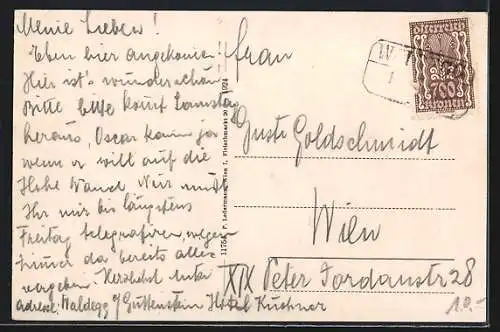 Meine Lieben!
Eben hier angekommen!
Hier ist's wunderschön
Bitte kommt Samstag
heraus, Oscar kann ja
wenn er will auf die
Hohe Wand. Nur müßt
Ihr mir bis längstens
Freitag telegrafieren, wegen
Zimmer da bereits alles
vergeben. Herzlichst
adresse: Waldegg Guttenstein Hotel Kushner
Frau
Guste Goldschmidt
Wien
XIX Peter Jordanstr 28
Österreich
700
Kronen
Ledermann, Wien I., Fleischmarkt 20 1924
10.-